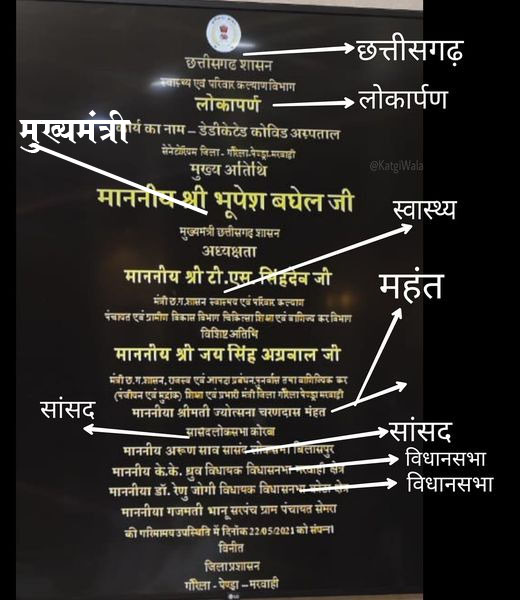 छत्तीसगढ शासन
छत्तीसगढ़
स्वास्थ्य एवं परिवार कल्याण विभाग
लोकापर्ण
लोकार्पण
मुख्यमंत्री
कार्य का नाम – डेडीकेटेड कोविड अस्पताल
सेनेटोरियम जिला - गौरेला-पेण्ड्रा-मरवाही
@KatgiWala
मुख्य अतिथि
माननीय श्री भूपेश बघेल जी
मुख्यमंत्री छत्तीसगढ़ शासन
स्वास्थ्य
अध्यक्षता
माननीय श्री टी.एस. सिंहदेव जी
महंत
मंत्री छ.ग.शासन स्वास्थय एवं परिवार कल्याण
पंचायत एवं ग्रामीण विकास विभाग चिकित्सा शिक्षा एवं वाणिज्य कर विभाग
विशिष्ट अतिथि
माननीय श्री जय सिंह अग्रवाल जी
मंत्री छ.ग.शासन, राजस्व एवं आपदा प्रबंधन,पुनर्वास तथा वाणिज्यिक कर
(पंजीयन एवं मुद्रांक) शिक्षा एवं प्रभारी मंत्री जिला गौरेला पेण्ड्रा मरवाही
सांसद
माननीय श्रीमती ज्योत्सना चरणदास मंहत
सासदलोकसभा कोरबा
सांसद
माननीय अरूण साव सासंद लोकसभा बिलासपुर
विधानसभा
माननीय के.के. ध्रुव विधायक विधासनभा मरवाही क्षेत्र
विधानसभा
माननीया डॉ. रेणु जोगी विधायक विधासनभा कोटा क्षेत्र
माननीया गजमती भानू सरपंच ग्राम पंचायत सेमरा
की गरिमामय उपस्थिति में दिनाँक 22/05/2021 को संपन्न
विनीत
जिला प्रशासन
गौरेला - पेण्ड्रा – मरवाही
LG